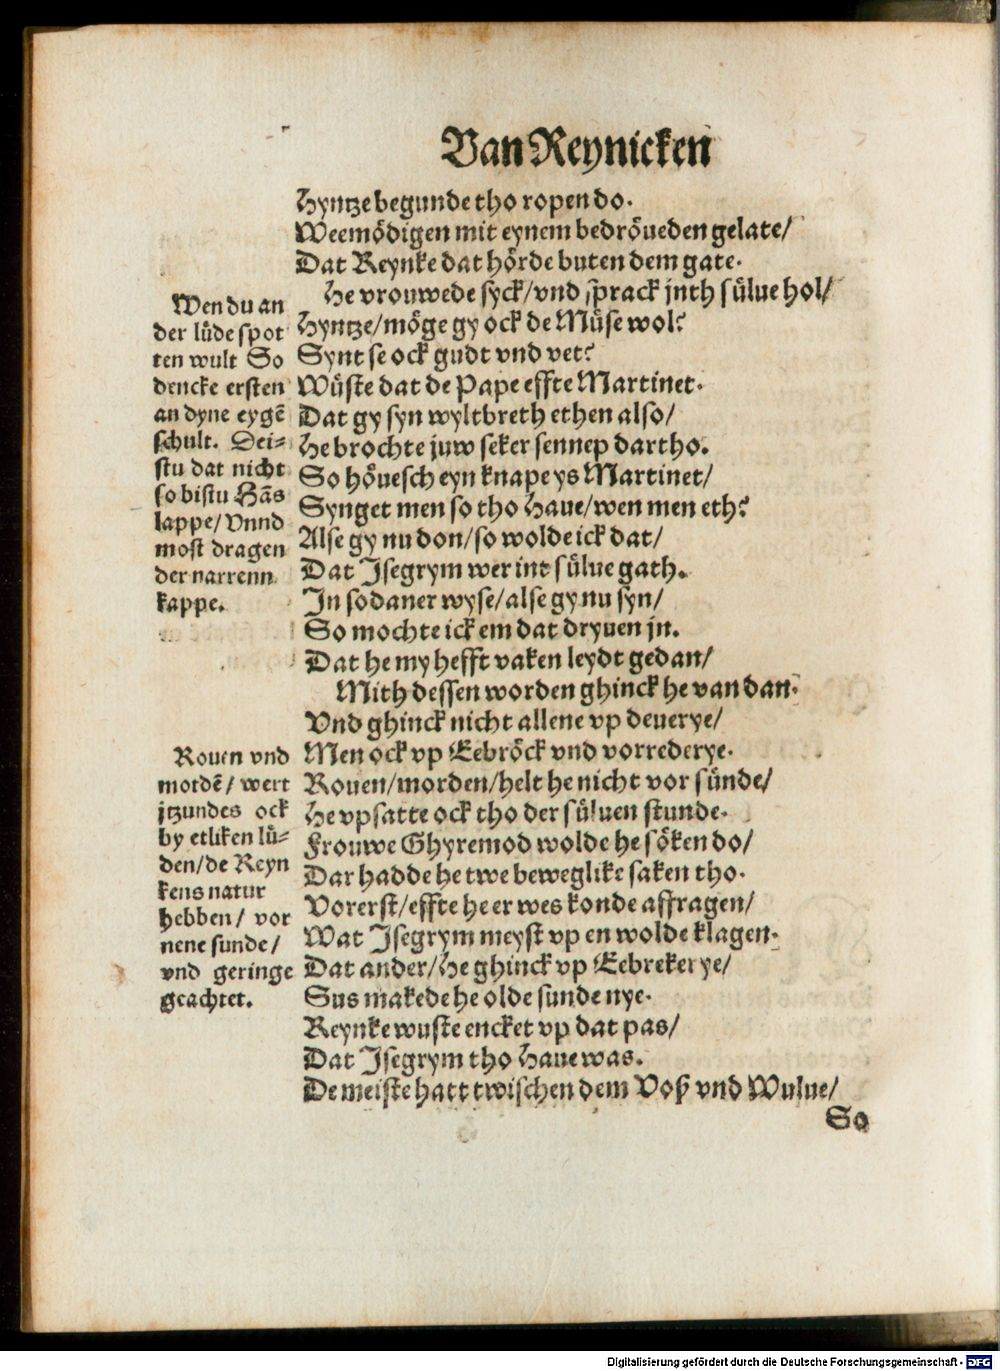 Van Reynicken
Hyntze begunde tho ropen do.
Weemödigen mit eynem bedröueden gelate/
Dat Reynke dat hörde buten dem gate.
He vrouwede syck/vnd sprack jnth sülue hol/
Hyntze/möge gy ock de Müse wol?
Synt se ock gudt vnd vet?
Wüste dat de Pape effte Martinet.
Dat gy syn wyltbreth ethen also/
He brochte juw seker sennep dartho.
So höuesch eyn knape ys Martinet/
Synget men so tho Haue/wen men eth?
Alse gy nu don/so wolde ick dat/
Dat Isegrym wer int sülue gath.
In sodaner wyse/alse gy nu syn/
So mochte ick em dat dryuen jn.
Dat he my hefft vaken leydt gedan/
Mith dessen worden ghinck he van dan.
Vnd ghinck nicht allene vp deuerye/
Men ock vp Eebröck vnd vorrederye.
Rouen/morden/helt he nicht vor sünde/
He vpsatte ock tho der süluen stunde.
Frouwe Ghyremod wolde he söken do/
Dar hadde he twe beweglike saken tho.
Vorerst/effte he er wes konde affragen/
Wat Isegrym meyst vp en wolde klagen.
Dat ander/He ghinck vp Eebrekerye/
Sus makede he olde sunde nye.
Reynke wuste encket vp dat pas/
Dat Isegrym tho Haue was.
De meiste hatt twischen dem Voß vnd Wulue/
So
Wen du an
der lüde spot
ten wult So
dencke ersten
an dyne eygē
schult. Dei=
stu dat nicht
so bistu Hās
lappe/Vnnd
most dragen
der narrenn
kappe.
Rouen vnd
mordē/ wert
jtzundes ock
by etliken lü=
den/de Reyn
kens natur
hebben/ vor
nene sunde/
vnd geringe
geachtet.
Digitalisierung gefördert durch die Deutsche Forschungsgemeinschaft - DFG